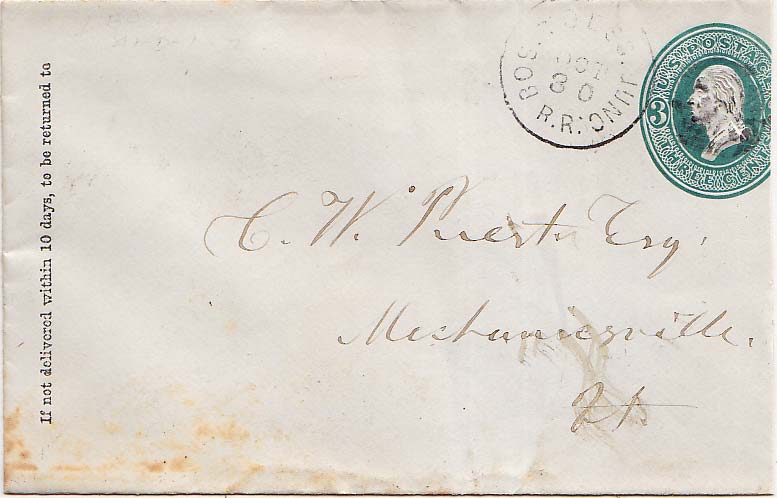 If not delivered within 10 days, to be returned to
BOS. ROUSES JUNC. R.R.
OCT
30
U.S. POSTAGE
3
THREE CENTS
C. W. Esq.
Mechanicsville.
Vt.